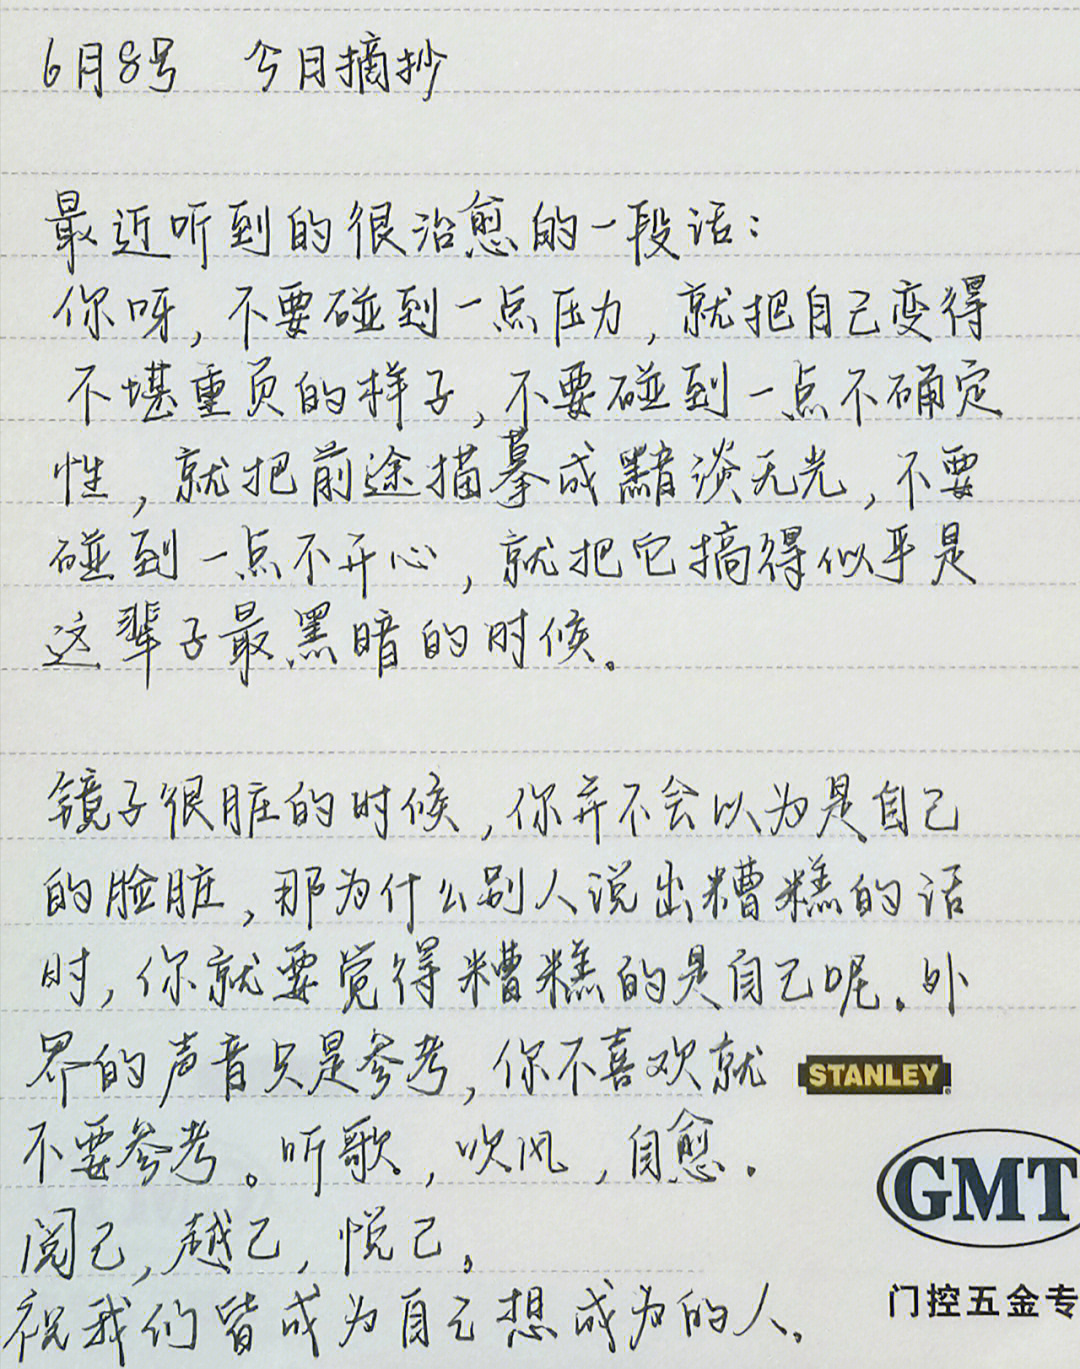 6月8号 今月摘抄
最近听到的很治愈的一段话：
你呀，不要碰到一点压力，就把自己变得
不堪重负的样子，不要碰到一点不确定
性，就把前途描摹成黯淡无光，不要
碰到一点不开心，就把它搞得似乎是
这辈子最黑暗的时候。
镜子很脏的时候，你并不会以为是自己
的脸脏，那为什么别人说出糟糕的话
时，你就要觉得糟糕的是自己呢。外
界的声音只是参考，你不喜欢就
STANLEY
不要参考。听歌，吹风，自愈。
GMT
阅己，越己，悦己。
门控五金专
祝我们皆成为自己想成为的人。